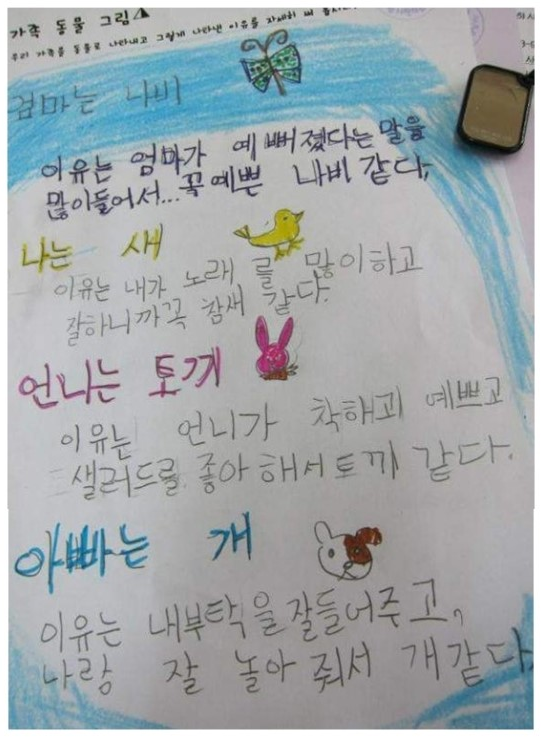 가족 동물 그림
우리 가족을 동물로 나타내고 그렇게 나타낸 이유를 자세히 써 봅시다
엄마는 나비
이유는 엄마가 예뻐졌다는 말을
많이들어서... 꼭 예쁜 나비 같다.
나는 새
이유는 내가 노래를 많이하고
잘하니까 꼭 참새 같다.
언니는 토끼
이유는 언니가 착해고 예쁘고
샐러드를 좋아해서 토끼 같다.
아빠는 개
이유는 내부탁을 잘들어주고,
나랑 잘 놀아 줘서 개같다.